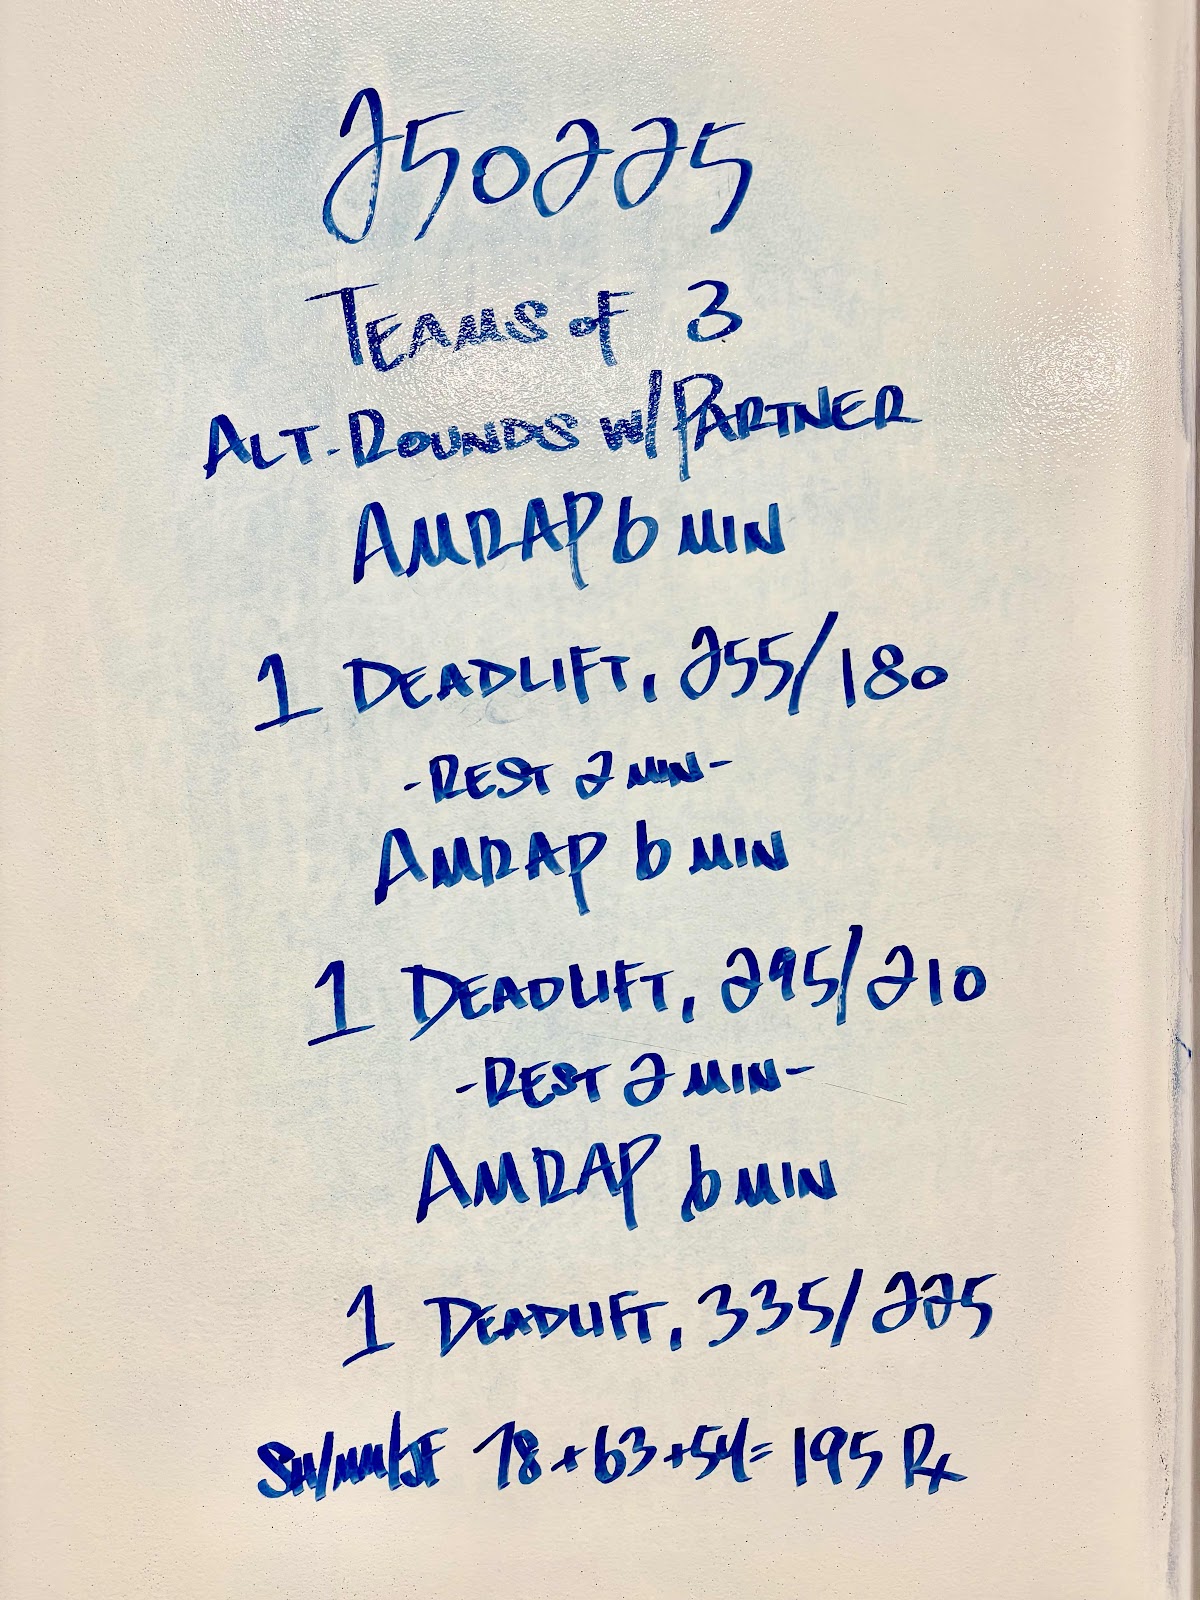 250225
TEAMS OF 3
ALT. ROUNDS W/PARTNER
AMRAP 6 MIN
1 DEADLIFT, 255/180
-REST 2 MIN-
AMRAP 6 MIN
1 DEADLIFT, 295/210
-REST 2 MIN-
AMRAP 6 MIN
1 DEADLIFT, 335/225
SH/MM/JF 78+63+54=195 Rx